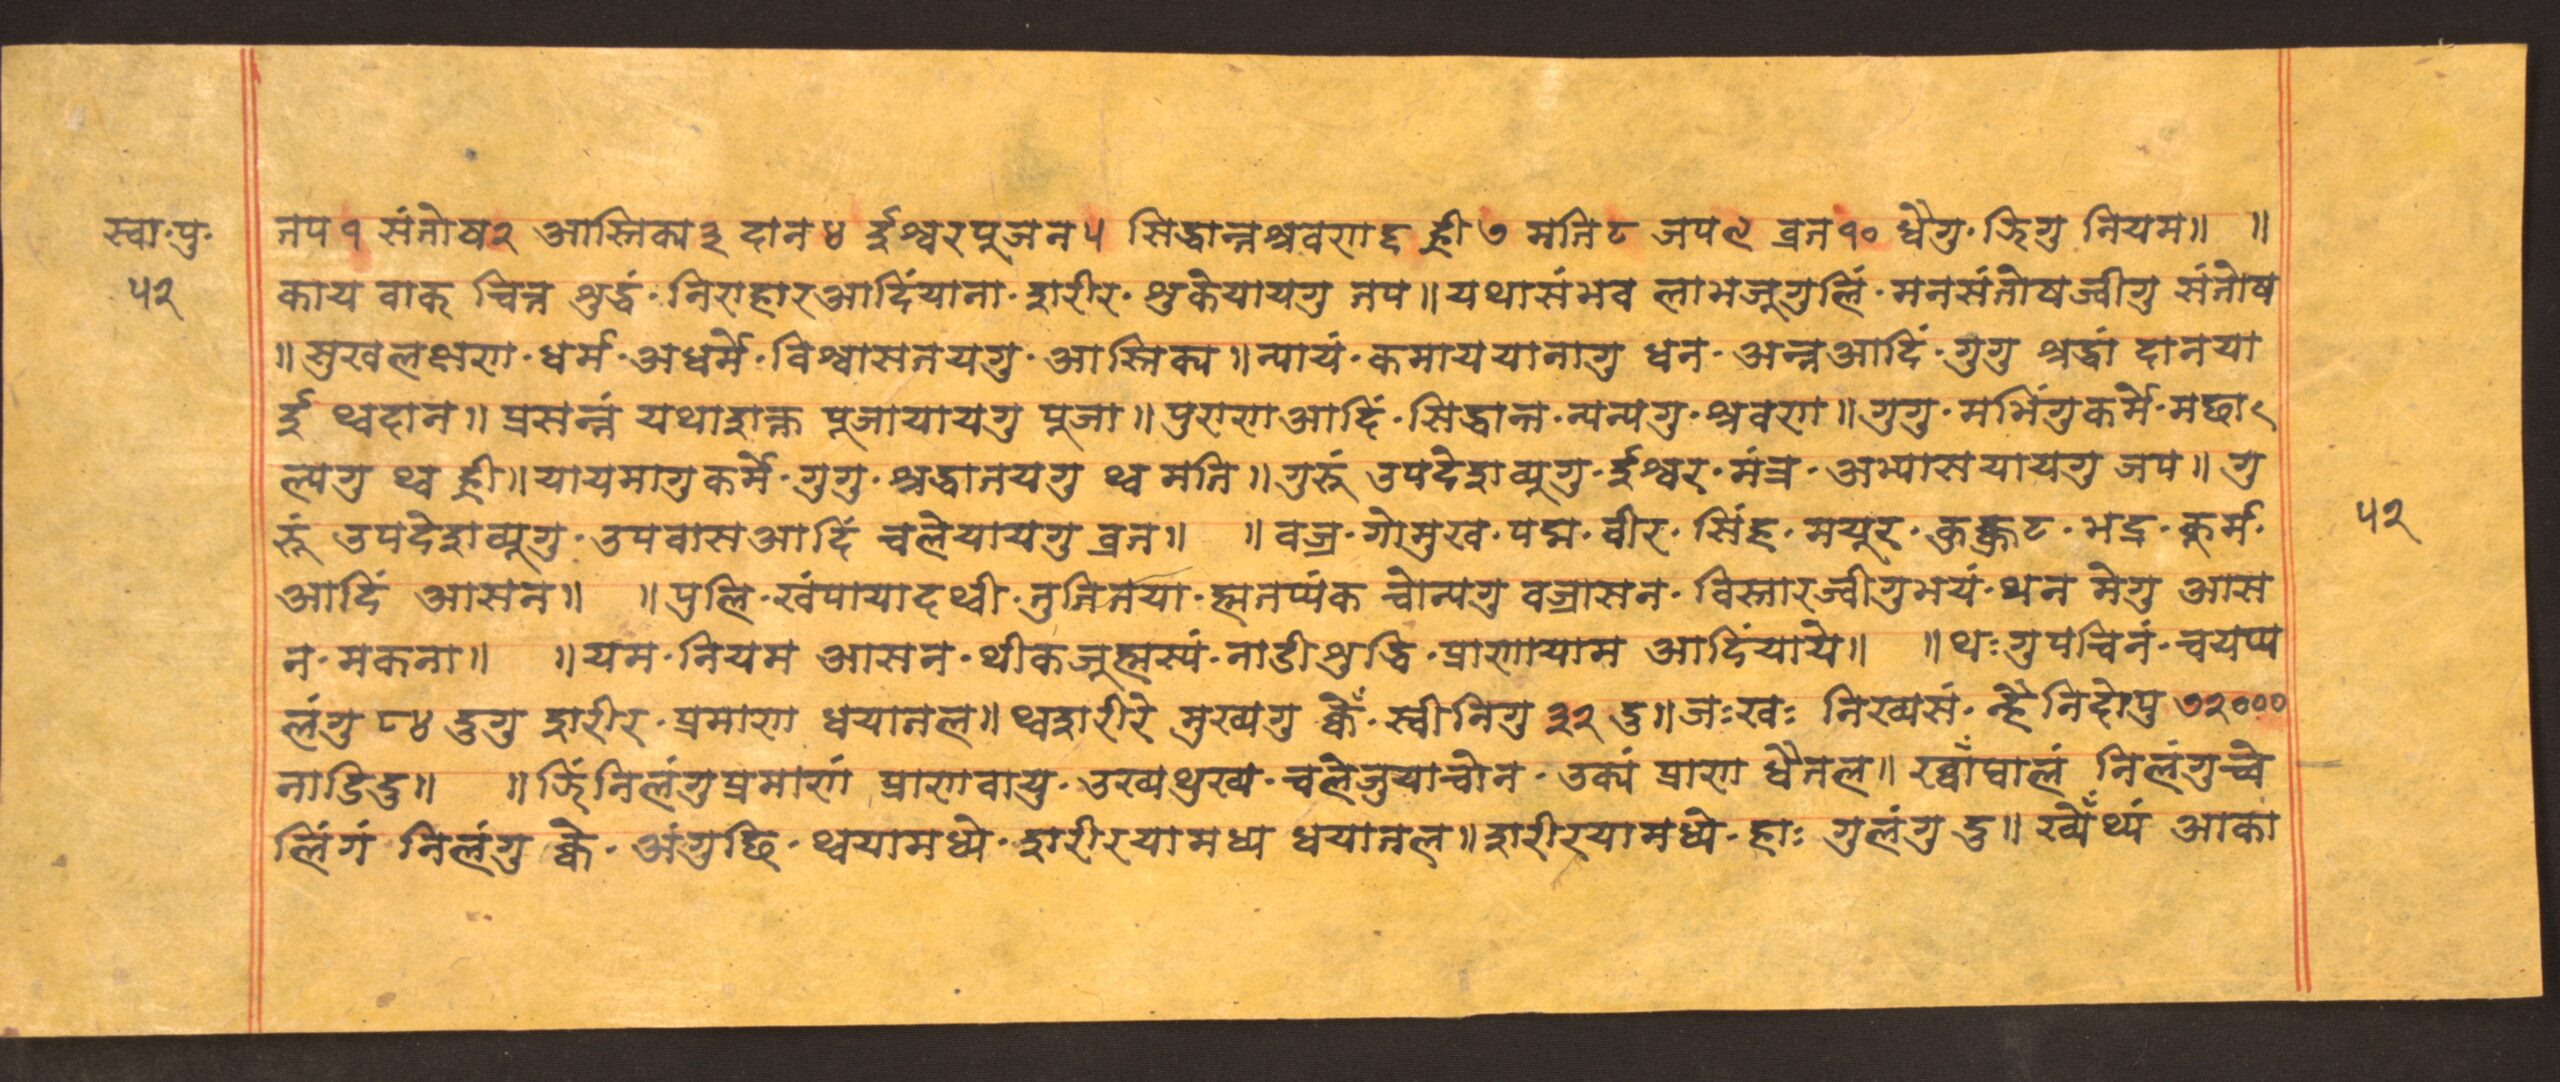 स्वा·पु·
५२
तप१ संतोष२ आस्तिक्य३ दान४ ईश्वरपूजन५ सिद्धान्तश्रवण६ ह्री७ मति८ जप९ व्रत१० थ्वैगु·झिगु नियम॥ ॥
काय वाक् चित्त शुद्धं·निराहारआदिंयाना·शरीर·शुकेयायगु तप॥यथासंभव लाभजूगुलिं·मनसंतोषज्वीगु संतोष
॥सुखलक्षण·धर्म·अधर्मे·विश्वासतयगु·आस्तिक्य॥न्यायं·कमाययानागु धन·अन्नआदिं·गुगु श्रद्धां दानया
ई थ्वदान॥प्रसन्नं यथाशक्त पूजायायगु पूजा॥पुराणआदिं·सिद्धान्त·न्यन्यगु·श्रवण॥गुगु·मभिंगुकर्मे·मछाः
ल्यगु थ्व ह्री॥यायमागुकर्मे·गुगु·श्रद्धातयगु थ्व मति॥गुरूं उपदेशव्यूगु·ईश्वर·मंत्र·अभ्यासयायगु जप॥गु
रूं उपदेशव्यूगु·उपवासआदिं चलेयायगु व्रत॥ ॥वज्र·गोमुख·पद्म·वीर·सिंह·मयूर·कुक्कुट·भद्र·कूर्म·
आदिं आसन॥ ॥पुलि·खंपायादथ्वी·तुतितया·ह्मतप्यंक च्वोन्यगु वज्रासन·विस्तारज्वीगुभयं·थन मेगु आस
न·मकना॥ ॥यम·नियम आसन·थीकजूह्मस्यं·नाडीशुद्धि·प्राणायाम आदिंयाये॥ ॥थःगुपचिनं·चयप्य
लंगु ८४ दुगु शरीर·प्रमाण धयातल॥थ्वशरीरे मुख्यगु क्वें·स्वीनिगु ३२ दु॥जःखः निख्यसं·न्हैनिदोपु ७२०००
नाडिदु॥ ॥झिंनिलंगुप्रमाणं प्राणवायु·उख्यथुख्य·चलेजुयाच्वोन·उक्यं प्राण धैतल॥ निलंगुच्चे
लिंगं निलंगु क्वे·अंगुछि·थ्वयामध्ये·शरीरयामध्य धयातल॥शरीरयामध्ये·हाः गुलंगु दु॥ख्येँथ्यं आका
५२